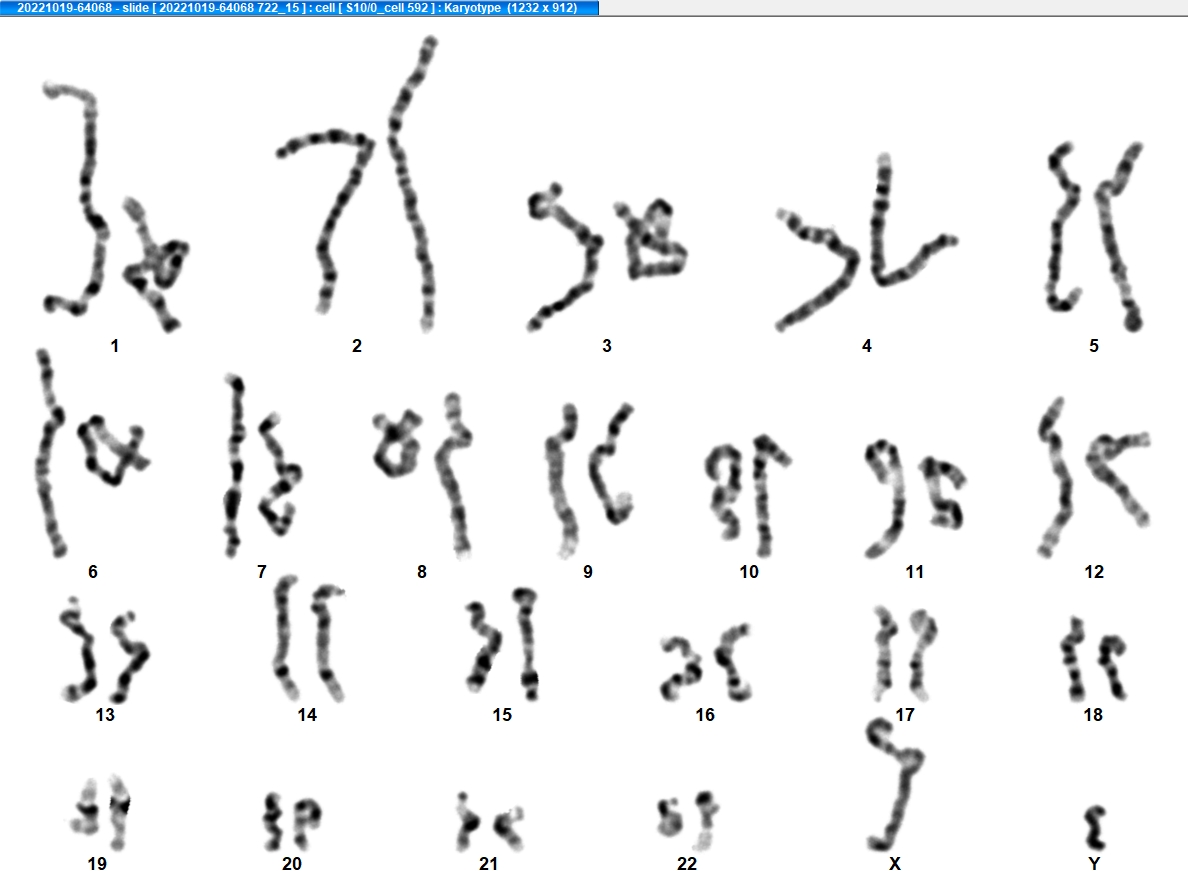 20221019-64068 - slide [ 20221019-64068 722_15 ] : cell [ S10/0_cell 592 ] : Karyotype (1232 x 912)
1 2 3 4 5
6 7 8 9 10 11 12
13 14 15 16 17 18
19 20 21 22 X Y